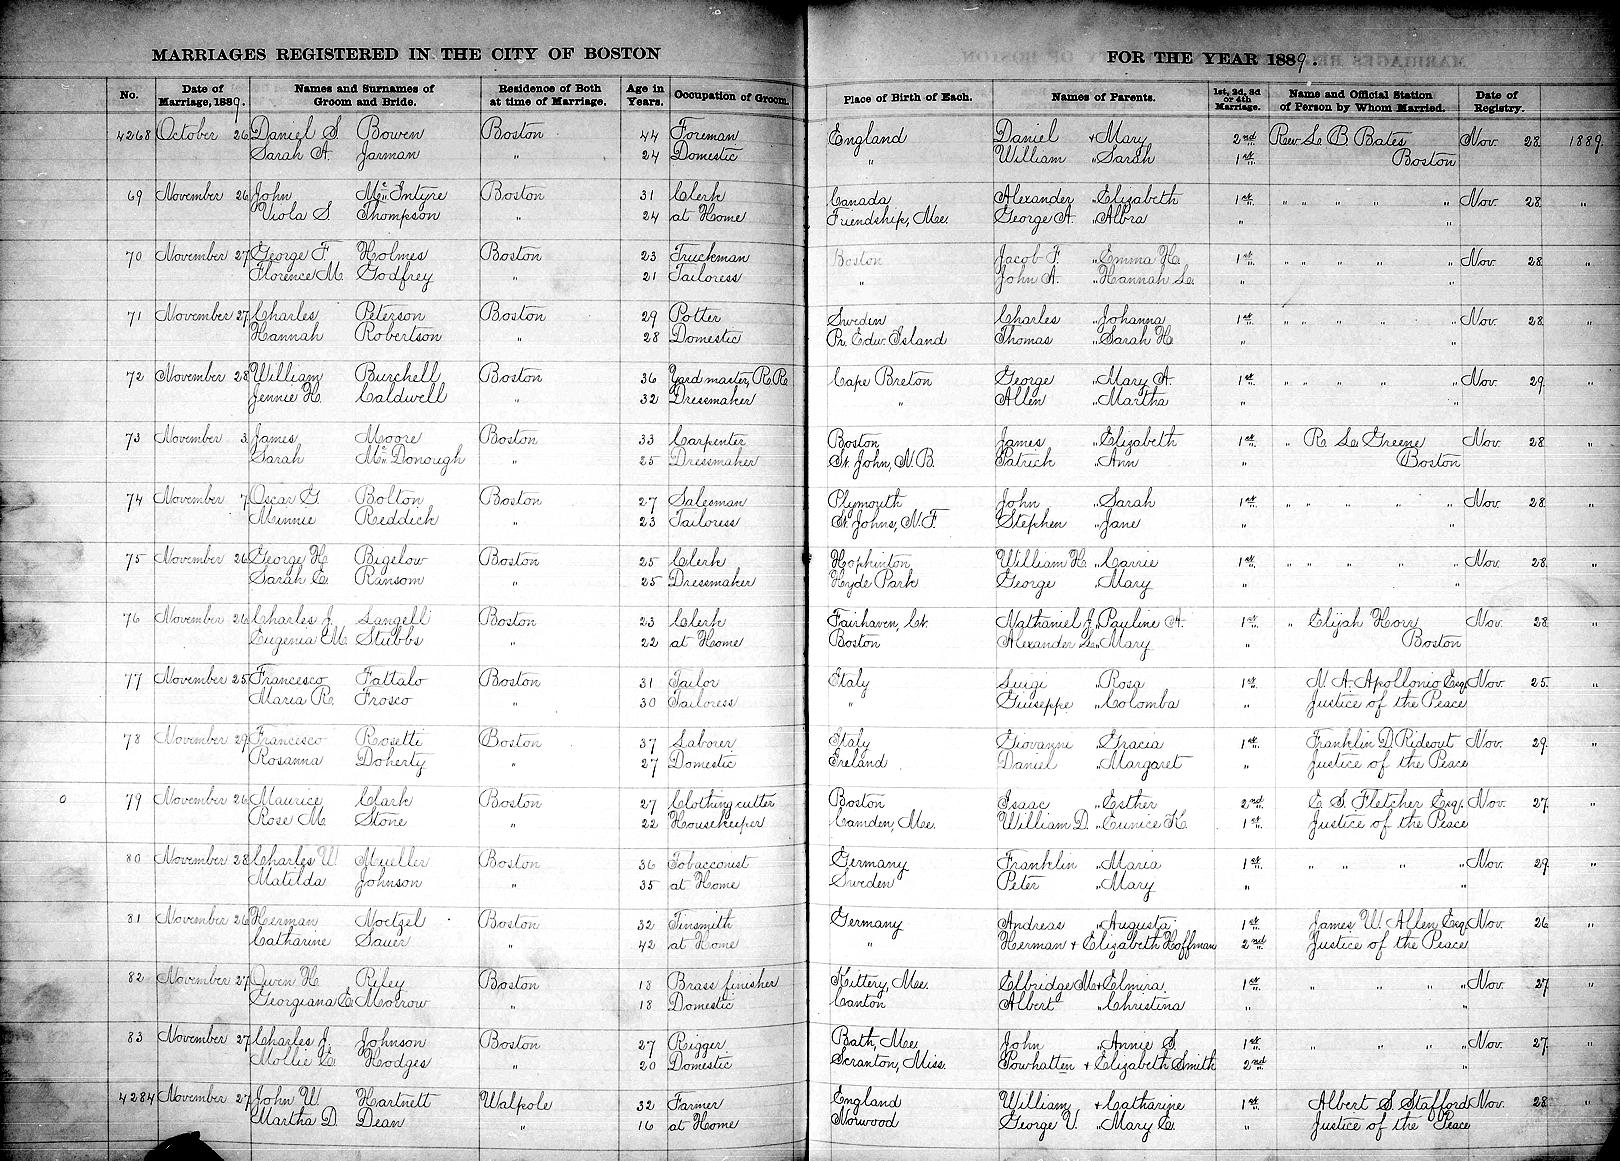 MARRIAGES REGISTERED IN THE CITY OF BOSTON FOR THE YEAR 1889.
No. Date of Marriage, 1889. Names and Surnames of Groom and Bride. Residence of Both at time of Marriage. Age in Years. Occupation of Groom. Place of Birth of Each. Names of Parents. 1st, 2d, 3d or 4th Marriage. Name and Official Station of Person by Whom Married. Date of Registry.
4268 October 26 Daniel S Bowen Boston 44 Foreman England Daniel + Mary 2nd Rev. L. B Bates Nov. 28 1889.
Sarah A. Jarman " 24 Domestic " William " Sarah 1st. Boston
69 November 26 John McIntyre Boston 31 Clerk Canada Alexander " Elizabeth 1st " " " " " Nov. 28 "
Viola S Thompson " 24 at Home Friendship, Me. George A. " Albra " "
70 November 27 George F Holmes Boston 23 Truckman Boston Jacob F. " Emma H. 1st " " " " " Nov. 28 "
Florence M. Godfrey " 21 Tailoress " John A. " Hannah L. " "
71 November 27 Charles Peterson Boston 29 Potter Sweden Charles " Johanna 1st " " " " " Nov. 28 "
Hannah Robertson " 28 Domestic Pr. Edw. Island Thomas " Sarah H " "
72 November 28 William Burchell Boston 36 Yard master, R.R. Cape Breton George " Mary A. 1st " " " " " Nov. 29 "
Jennie H. Caldwell " 32 Dressmaker " Allen " Martha " "
73 November 3 James Moore Boston 33 Carpenter Boston James " Elizabeth 1st " R. L. Greene Nov. 28 "
Sarah McDonough " 25 Dressmaker St. John, N.B. Patrick " Ann " Boston
74 November 7 Oscar G Bolton Boston 27 Salesman Plymouth John " Sarah 1st " " " " " Nov. 28 "
Minnie Reddick " 23 Tailoress St. Johns, N.F. Stephen " Jane " "
75 November 26 George H. Bigelow Boston 25 Clerk Hopkinton William H. " Carrie 1st " " " " " Nov. 28 "
Sarah E. Ransom " 25 Dressmaker Hyde Park George " Mary " "
76 November 26 Charles J. Langell Boston 23 Clerk Fairhaven, Ct. Nathaniel J. " Pauline A. 1st " Elijah Horr Nov. 28 "
Eugenia M. Stubbs " 22 at Home Boston Alexander L. " Mary " Boston
77 November 25 Francesco Fattalo Boston 31 Tailor Italy Luigi " Rosa 1st N. A. Apollonio Esq. Nov. 25 "
Maria R. Frosco " 30 Tailoress " Giuseppe " Colomba " Justice of the Peace
78 November 29 Francesco Rosetti Boston 37 Laborer Italy Giovanni " Gracia 1st Franklin D. Rideout Nov. 29 "
Rosanna Doherty " 27 Domestic Ireland Daniel " Margaret " Justice of the Peace
79 November 26 Maurice Clark Boston 27 Clothing cutter Boston Isaac " Esther 2nd E. S. Fletcher Esq. Nov. 27 "
Rose M. Stone " 22 Housekeeper Camden, Me. William D. " Eunice K 1st Justice of the Peace
80 November 28 Charles W. Mueller Boston 36 Tobacconist Germany Franklin " Maria 1st " " " " Nov. 29 "
Matilda Johnson " 35 at Home Sweden Peter " Mary " "
81 November 26 Herman Noetzel Boston 32 Tinsmith Germany Andreas " Augusta 1st James W. Allen Esq. Nov. 26 "
Catharine Sauer " 42 at Home " Herman + Elizabeth Hoffman 2nd Justice of the Peace
82 November 27 Owen H Riley Boston 18 Brass finisher Kittery, Me. Elbridge M + Elmira 1st " " " " Nov. 27 "
Georgiana E. Morrow " 18 Domestic Canton Albert " Christina " "
83 November 27 Charles J. Johnson Boston 27 Rigger Bath, Me. John " Annie S. 1st " " " " Nov. 27 "
Mollie E. Hodges " 20 Domestic Scranton, Miss. Powhatten + Elizabeth Smith 2nd "
4284 November 27 John W Hartnett Walpole 32 Farmer England William + Catharine 1st Albert S. Stafford Nov. 28 "
Martha D. Dean " 16 at Home Norwood George V. " Mary E. " Justice of the Peace